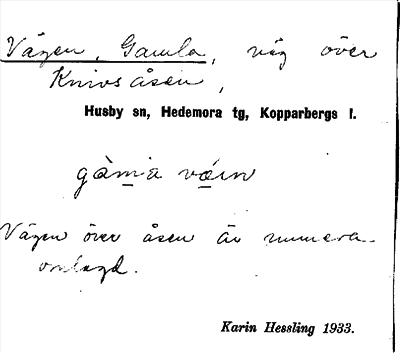 Vägen, Gamla, väg över
Knivsåsen,
Husby sn, Hedemora tg, Kopparbergs l.
gàm̲a væ̲ın
Vägen över åsen är numera
omlagd.
Karin Hessling 1933.